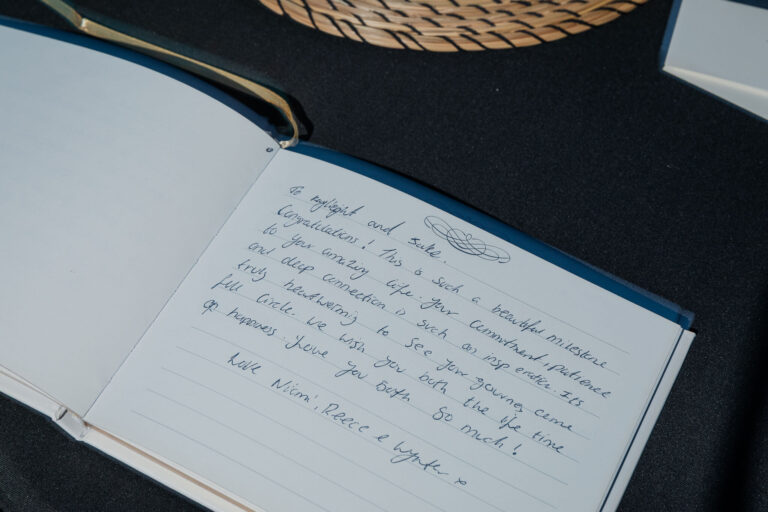 To and
Congratulations! This is such a beautiful milestone
to your amazing life. your commitment, patience
and deep connection is such an insperation. Its
truly heartwarming to see your journey come
full circle. We wish you both the life time
of happiness. Love you both so much!
Love Niomi, Reece & Wynter x